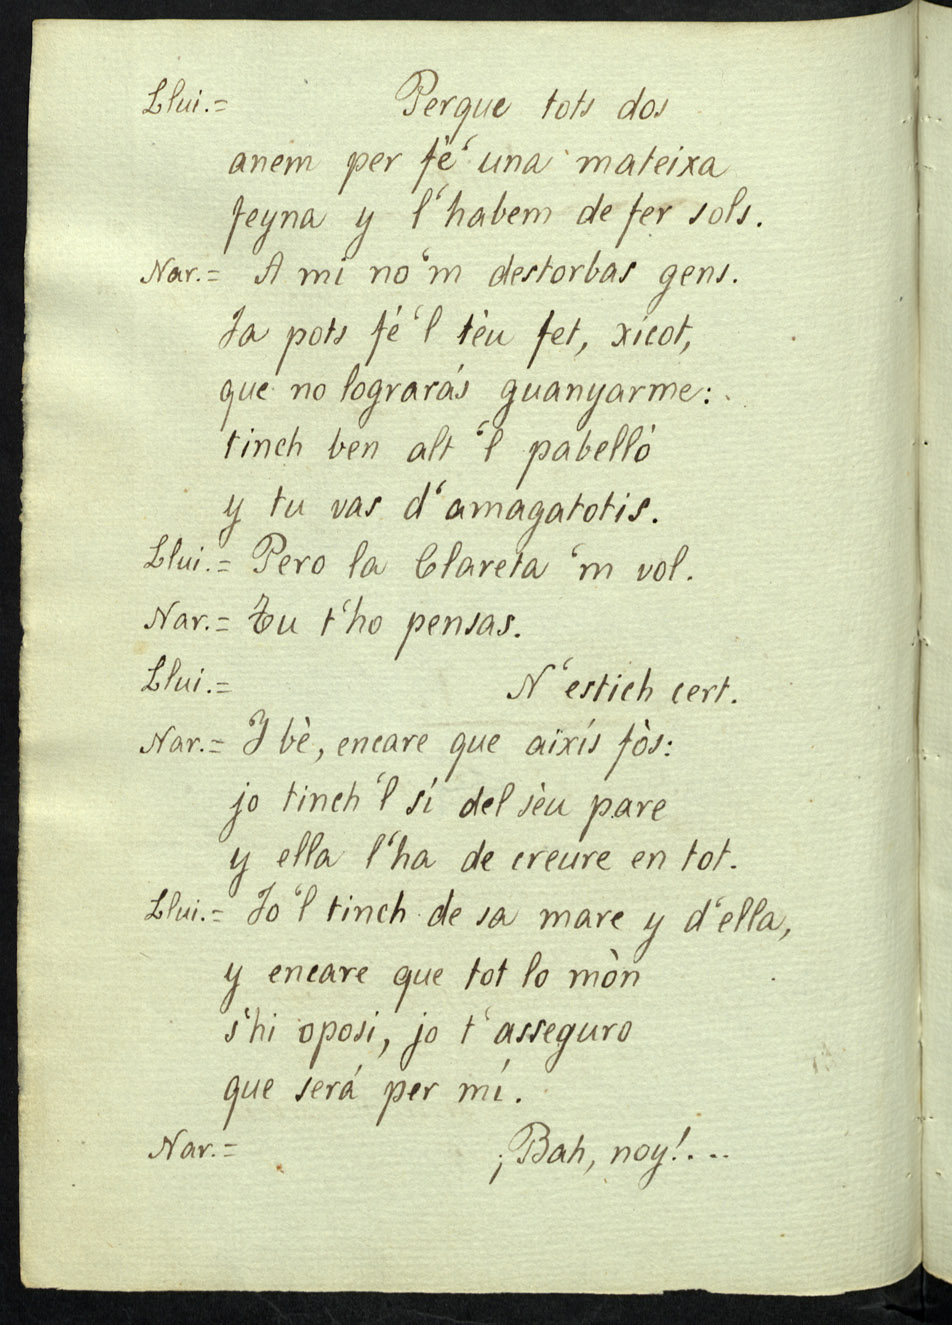 Llui.= Perque tots dos
anem per fè ‘una mateixa
feyna y l‘habem de fer sols.
Nar.= A mi no‘m destorbas gens.
Ja pots fé‘l tèu fet, xicot,
que no lograrás guanyarme:
tinch ben alt ‘l pabelló
y tu vas d‘amagatotis.
Llui.= Pero la Clareta ‘m vol.
Nar.= Tu t‘ho pensas.
Llui.= N‘estich cert.
Nar.= Y bè, encare que aixís fòs:
jo tinch ‘l sí del sèu pare
y ella l‘ha de creure en tot.
Llui.= Jo‘l tinch de sa mare y d‘ella,
y encare que tot lo mòn
s‘hi oposi, jo t‘asseguro
que será per mí.
Nar.= ¡Bah, noy!...